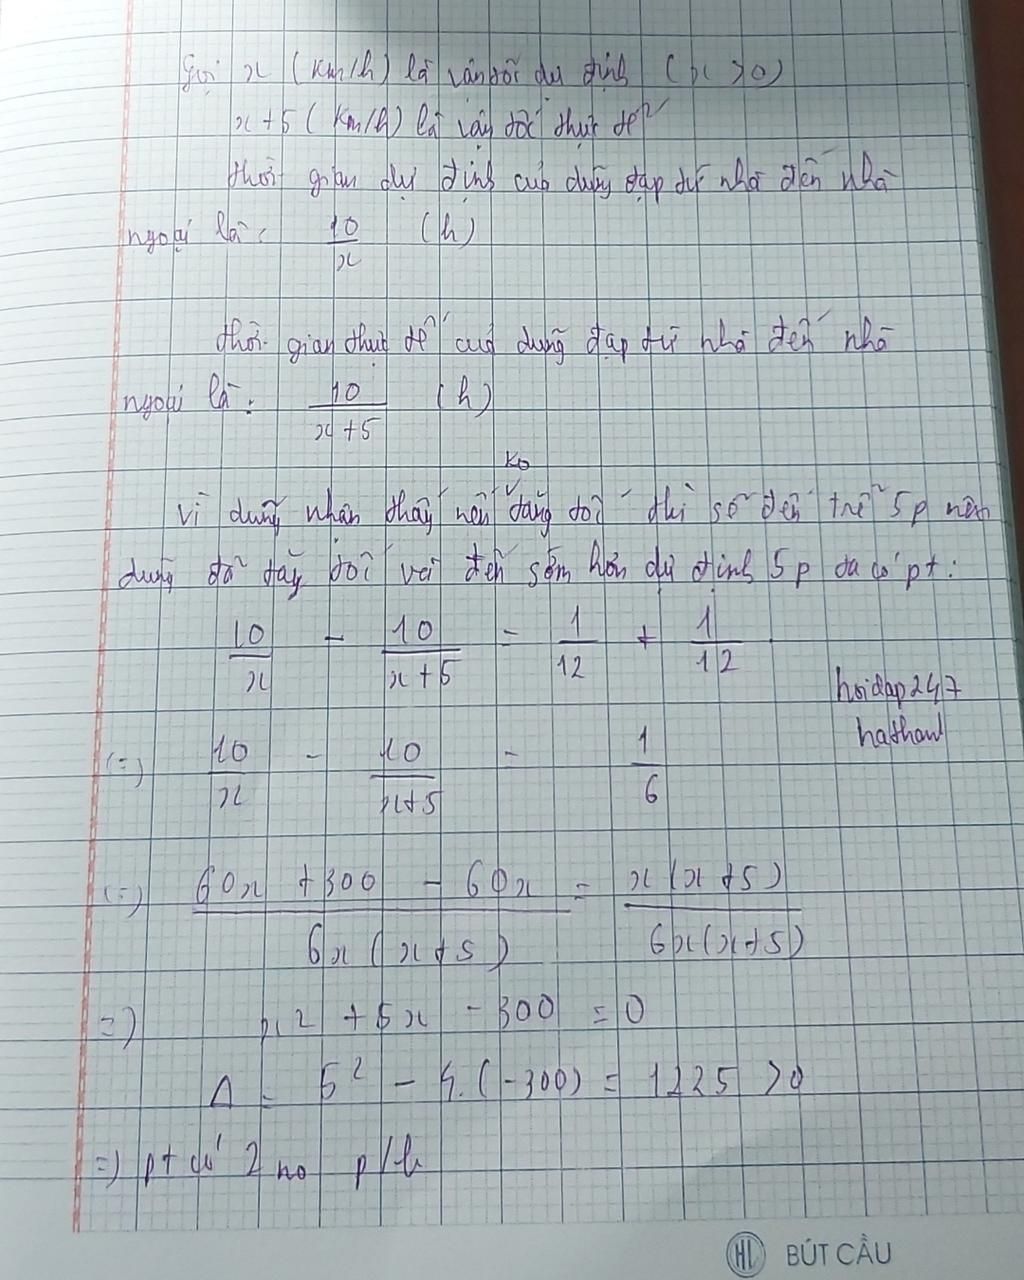 Gọi x (km/h) là vận tốc dự định (x > 0)
x + 5 (km/h) là vận tốc thực tế
thời gian dự định của dũng đạp từ nhà đến nhà
ngoại là: 10/x (h)
thời gian thực tế của dũng đạp từ nhà đến nhà
ngoại là: 10/(x+5) (h)
ko
vì dũng nhận thấy nếu tăng tốc thì sẽ đến trễ 5p nên
dũng đã tăng tốc và đến sớm hơn dự định 5p ta có pt:
10/x - 10/(x+5) = 1/12 + 1/12
hoidap247
(=) 10/x - 10/(x+5) = 1/6
(=) (60x + 300 - 60x)/(6x(x+5)) = x(x+5)/(6x(x+5))
=) x² + 5x - 300 = 0
Δ = 5² - 4.(-300) = 1225 > 0
=) pt có 2 no p/b
HL BÚT CẦU